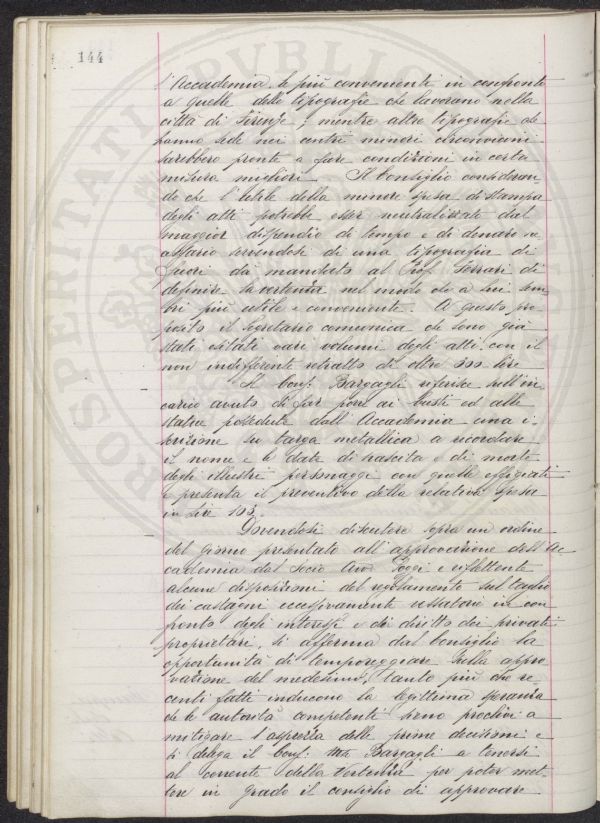 144
l'Accademia, le più convenienti in confronto
a quelle delle tipografie che lavorano nella
città di Firenze; mentre altre tipografie che
hanno sede nei centri minori circonvicini
sarebbero pronte a fare condizioni in certa
misura migliori. Il Consiglio consideran-
do che l'utile della minore spesa di stampa
degli atti potrebbe esser neutralizzato dal
maggior dispendio di tempo e di denaro ne-
cessario servendosi di una tipografia di
fuori dà mandato al Prof. Ferrari di
definire la vertenza nel modo che a lui sem-
bri più utile e conveniente. A questo pro-
posito il Segretario comunica che sono già
stati esitati vari volumi degli atti, con il
non indifferente retratto di oltre 300 lire
Il Cons. Bargagli riferisce sull'in-
carico avuto di far porre ai busti ed alle
statue possedute dall'Accademia una i-
scrizione su targa metallica a ricordare
il nome e le date di nascita e di morte
degli illustri personaggi con quelle effigiati
e presenta il preventivo della relativa spesa
in lire 103.
Dovendosi discutere sopra un ordine
del giorno presentato all'approvazione dell'Ac-
cademia dal Socio Avv. Poggi e riflettente
alcune disposizioni del regolamento sul taglio
dei castagni eccessivamente vessatorie in con-
fronto degli interessi e di diritto dei privati
proprietari, si afferma dal Consiglio la
opportunità di temporeggiare sulla appro-
vazione del medesimo, tanto più che re-
centi fatti inducono la legittima speranza
che le autorità competenti sieno proclivi a
mitigare l'asprezza delle prime decisioni e
si delega il Cons. Bargagli a tenersi
al corrente della vertenza per poter met-
tere in grado il consiglio di approvare